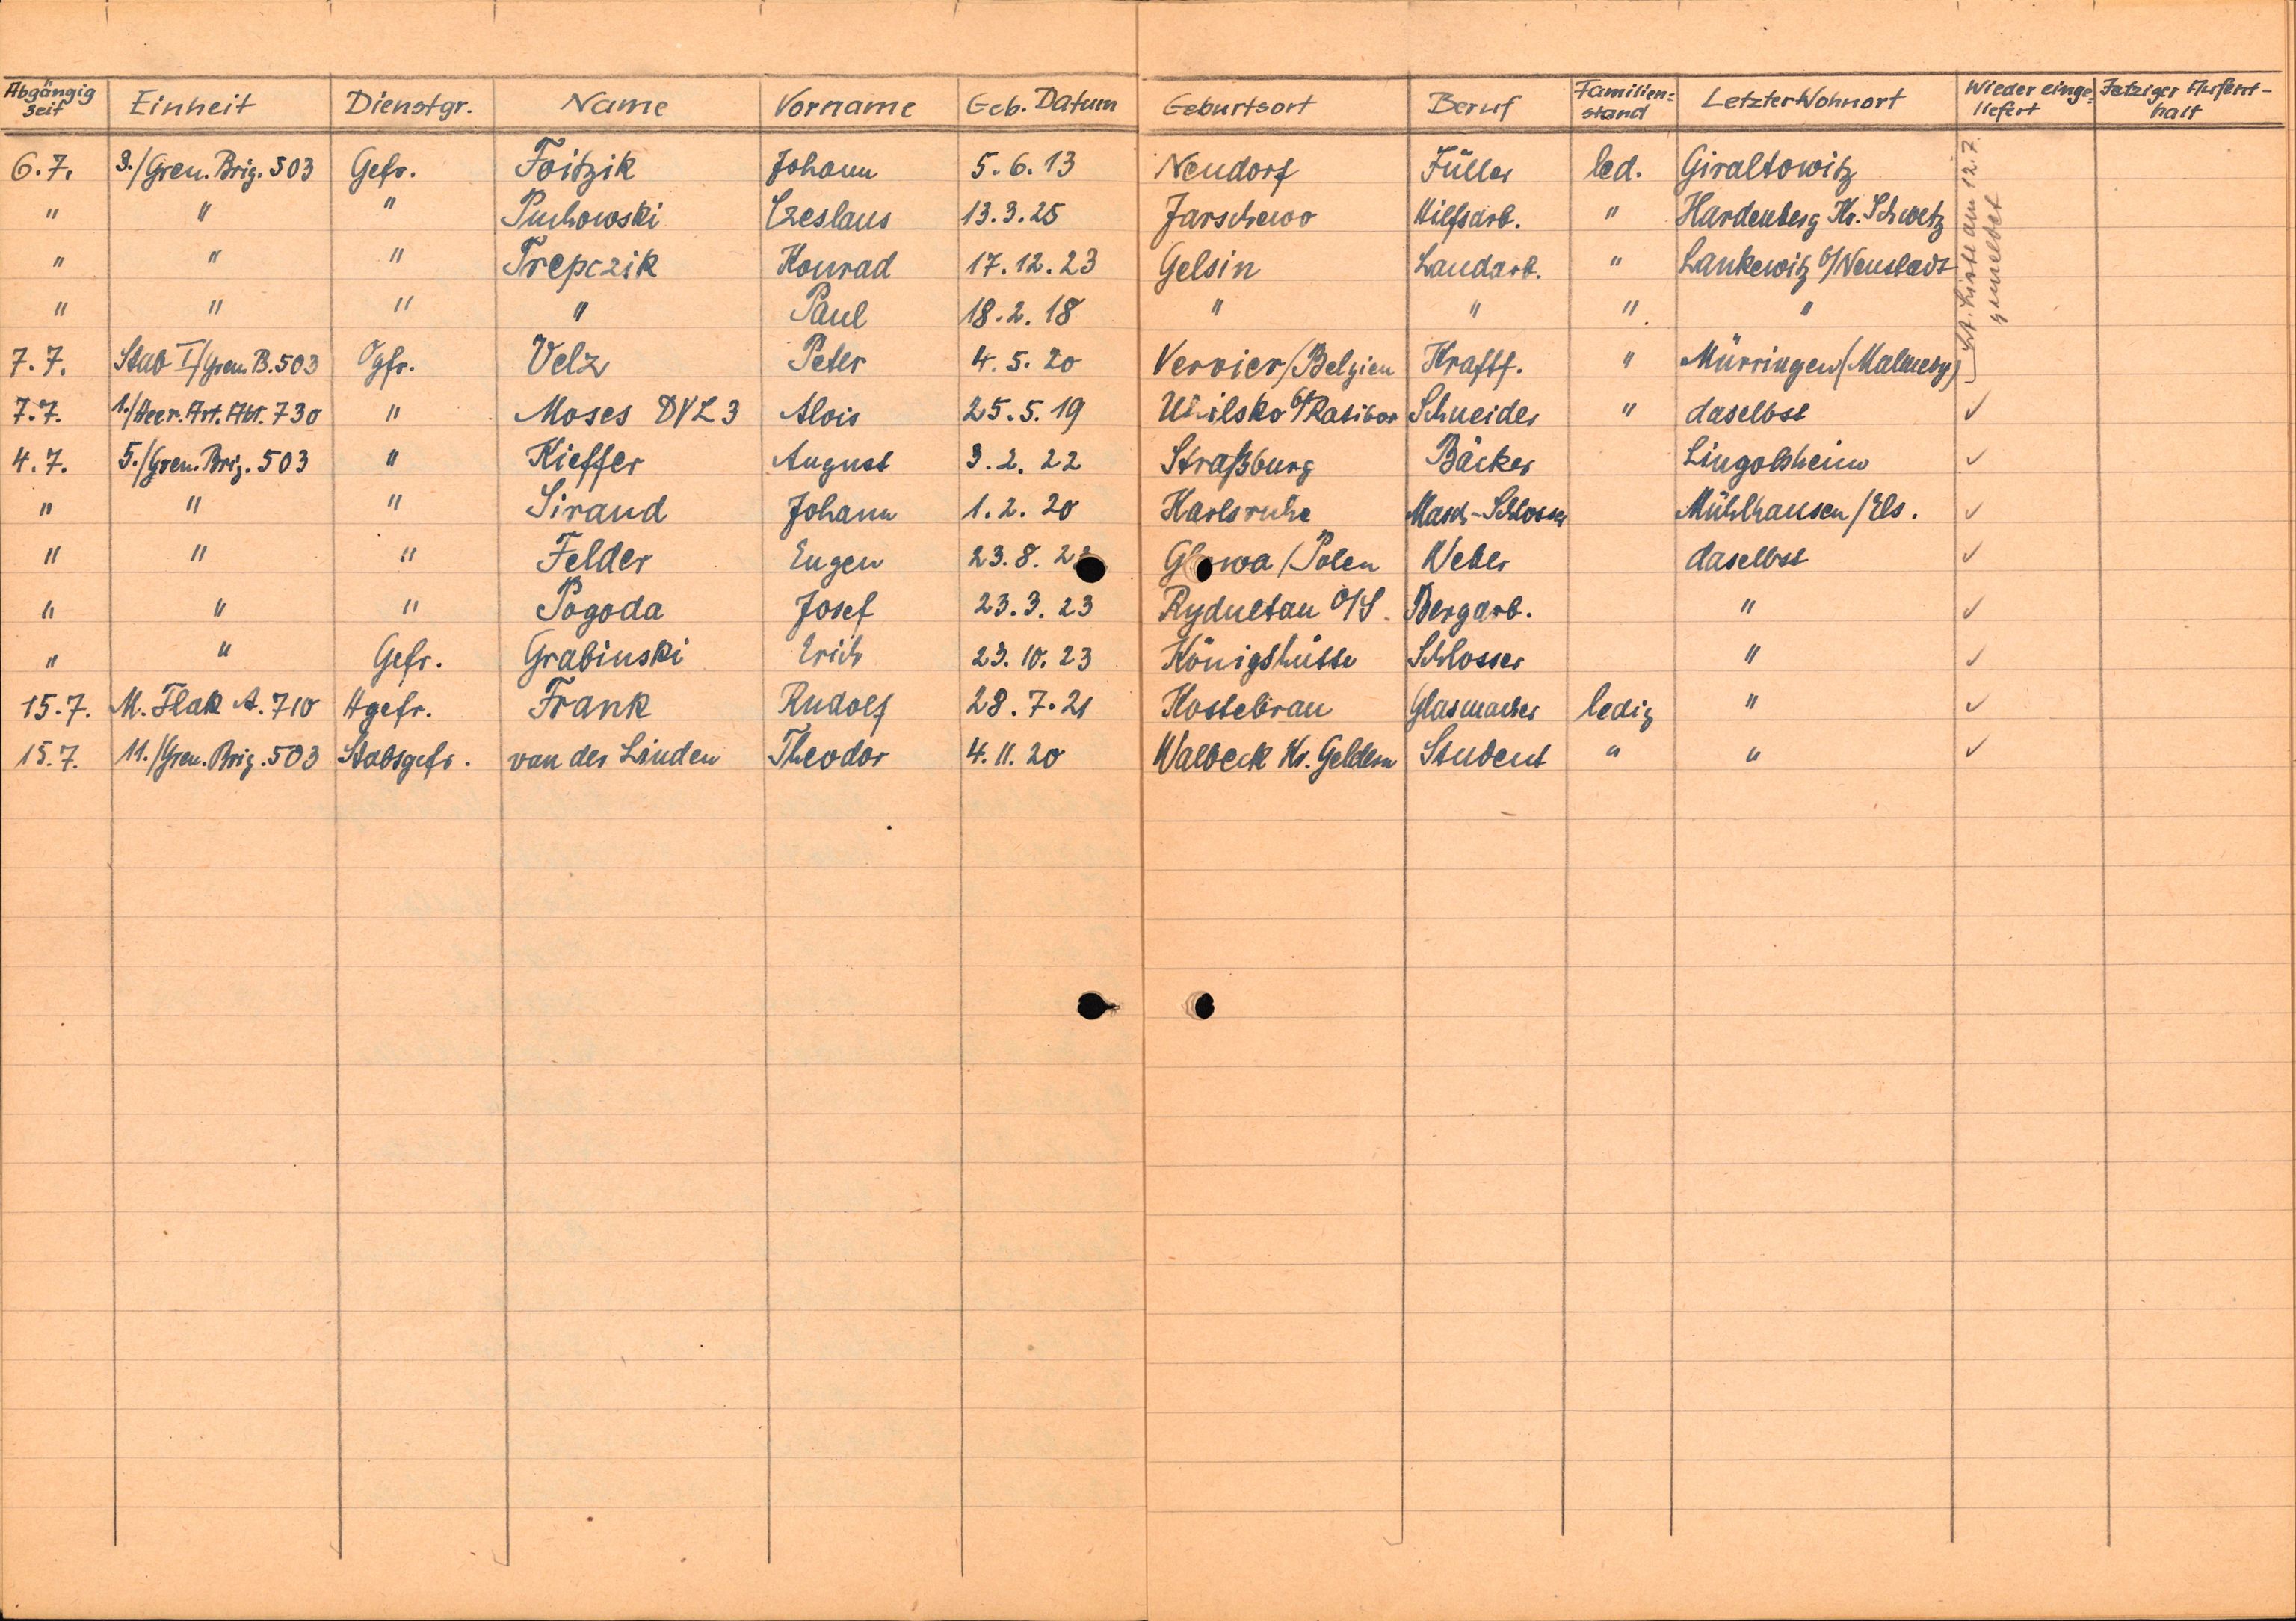 Abgängig seit Einheit Dienstgr. Name Vorname Geb. Datum Geburtsort Beruf Familien= stand Letzter Wohnort Wieder einge= liefert Jetziger Aufent- halt
6.7. 3./Gren. Brig. 503 Gefr. Foitzik Johann 5.6.13 Neudorf Füller led. Giraltowitz
" " " Puchowski Czeslaus 13.3.25 Jarschewo Hilfsarb. " Hardenberg Kr. Schwetz
" " " Trepczik Konrad 17.12.23 Gelsin Landarb. " Lankewitz b/Neustadt
" " " " Paul 18.2.18 " " " "
7.7. Stab I/Gren. B. 503 Ogfr. Velz Peter 4.5.20 Vervier/Belgien Kraftf. " Mürringen (Malmedy)
Liste am 12.7. gemeldet
7.7. 1./Heer. Art. Abt. 730 " Moses DVL 3 Alois 25.5.19 b/Ratibor Schneider " daselbst ✓
4.7. 5./Gren. Brig. 503 " Kieffer August 3.2.22 Straßburg Bäcker Lingolsheim ✓
" " " Sirand Johann 1.2.20 Karlsruhe Masch-Schlosser Mühlhausen/Els. ✓
" " " Felder Eugen 23.8. /Polen Weber daselbst ✓
" " " Pogoda Josef 23.3.23 Rydultau O/S. Bergarb. " ✓
" " Gefr. Grabinski Erich 23.10.23 Königshütte Schlosser " ✓
15.7. M. Flak A. 710 Hgefr. Frank Rudolf 28.7.21 Kostebrau Glasmacher ledig " ✓
15.7. 11./Gren. Brig. 503 Stabsgefr. van der Linden Theodor 4.11.20 Walbeck Kr. Geldern Student " " ✓